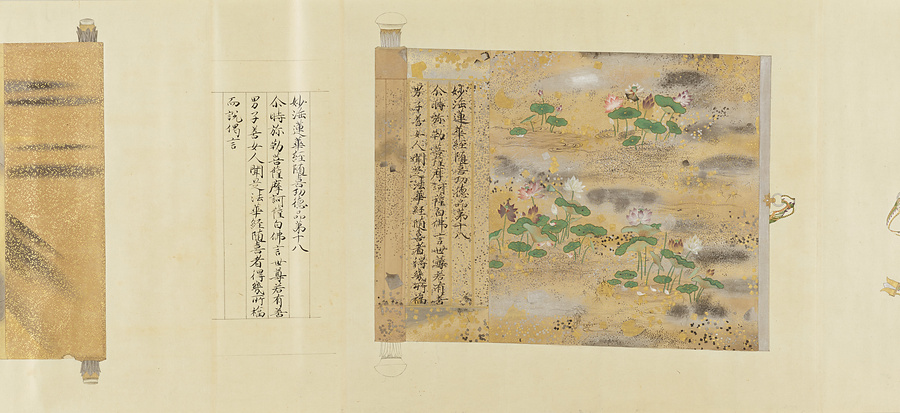 妙法蓮華經随喜功德品第十八
尒時弥勒菩薩摩訶薩白佛言世尊若有善
男子善女人聞是法華經随喜者得幾所福
妙法蓮華經随喜功德品第十八
尒時弥勒菩薩摩訶薩白佛言世尊若有善
男子善女人聞是法華經随喜者得幾所福
而説偈言